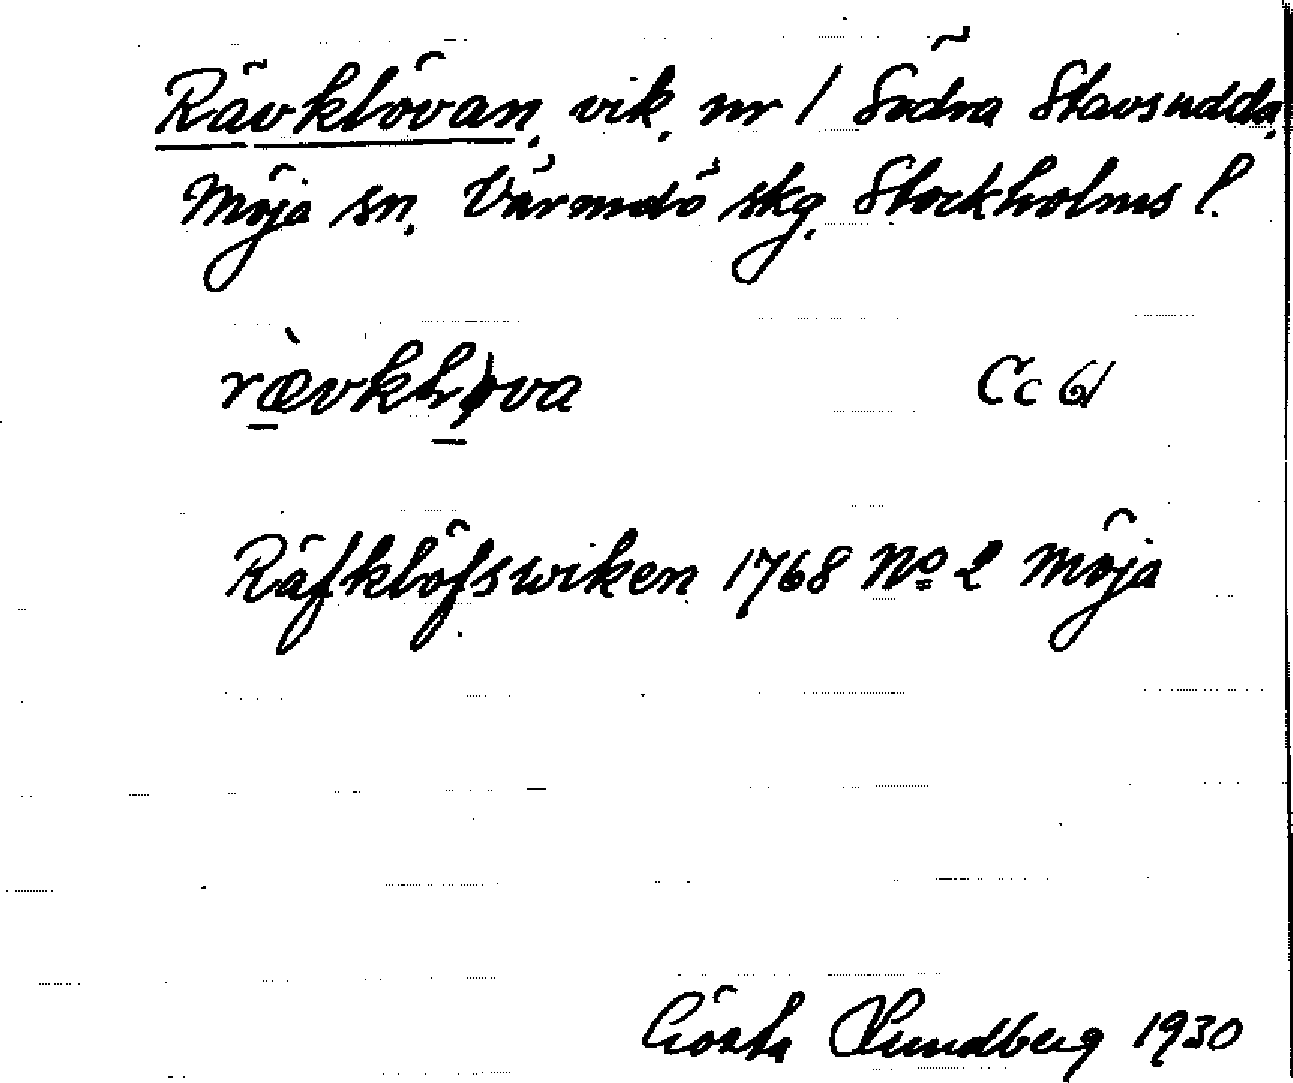 Rävklövan, vik, nr 1 Södra Stavsudda,
Möja sn, Värmdö skg, Stockholms l.
Cc 61
Räfklöfswiken 1768 No 2 Möja
Gösta Sundberg 1930